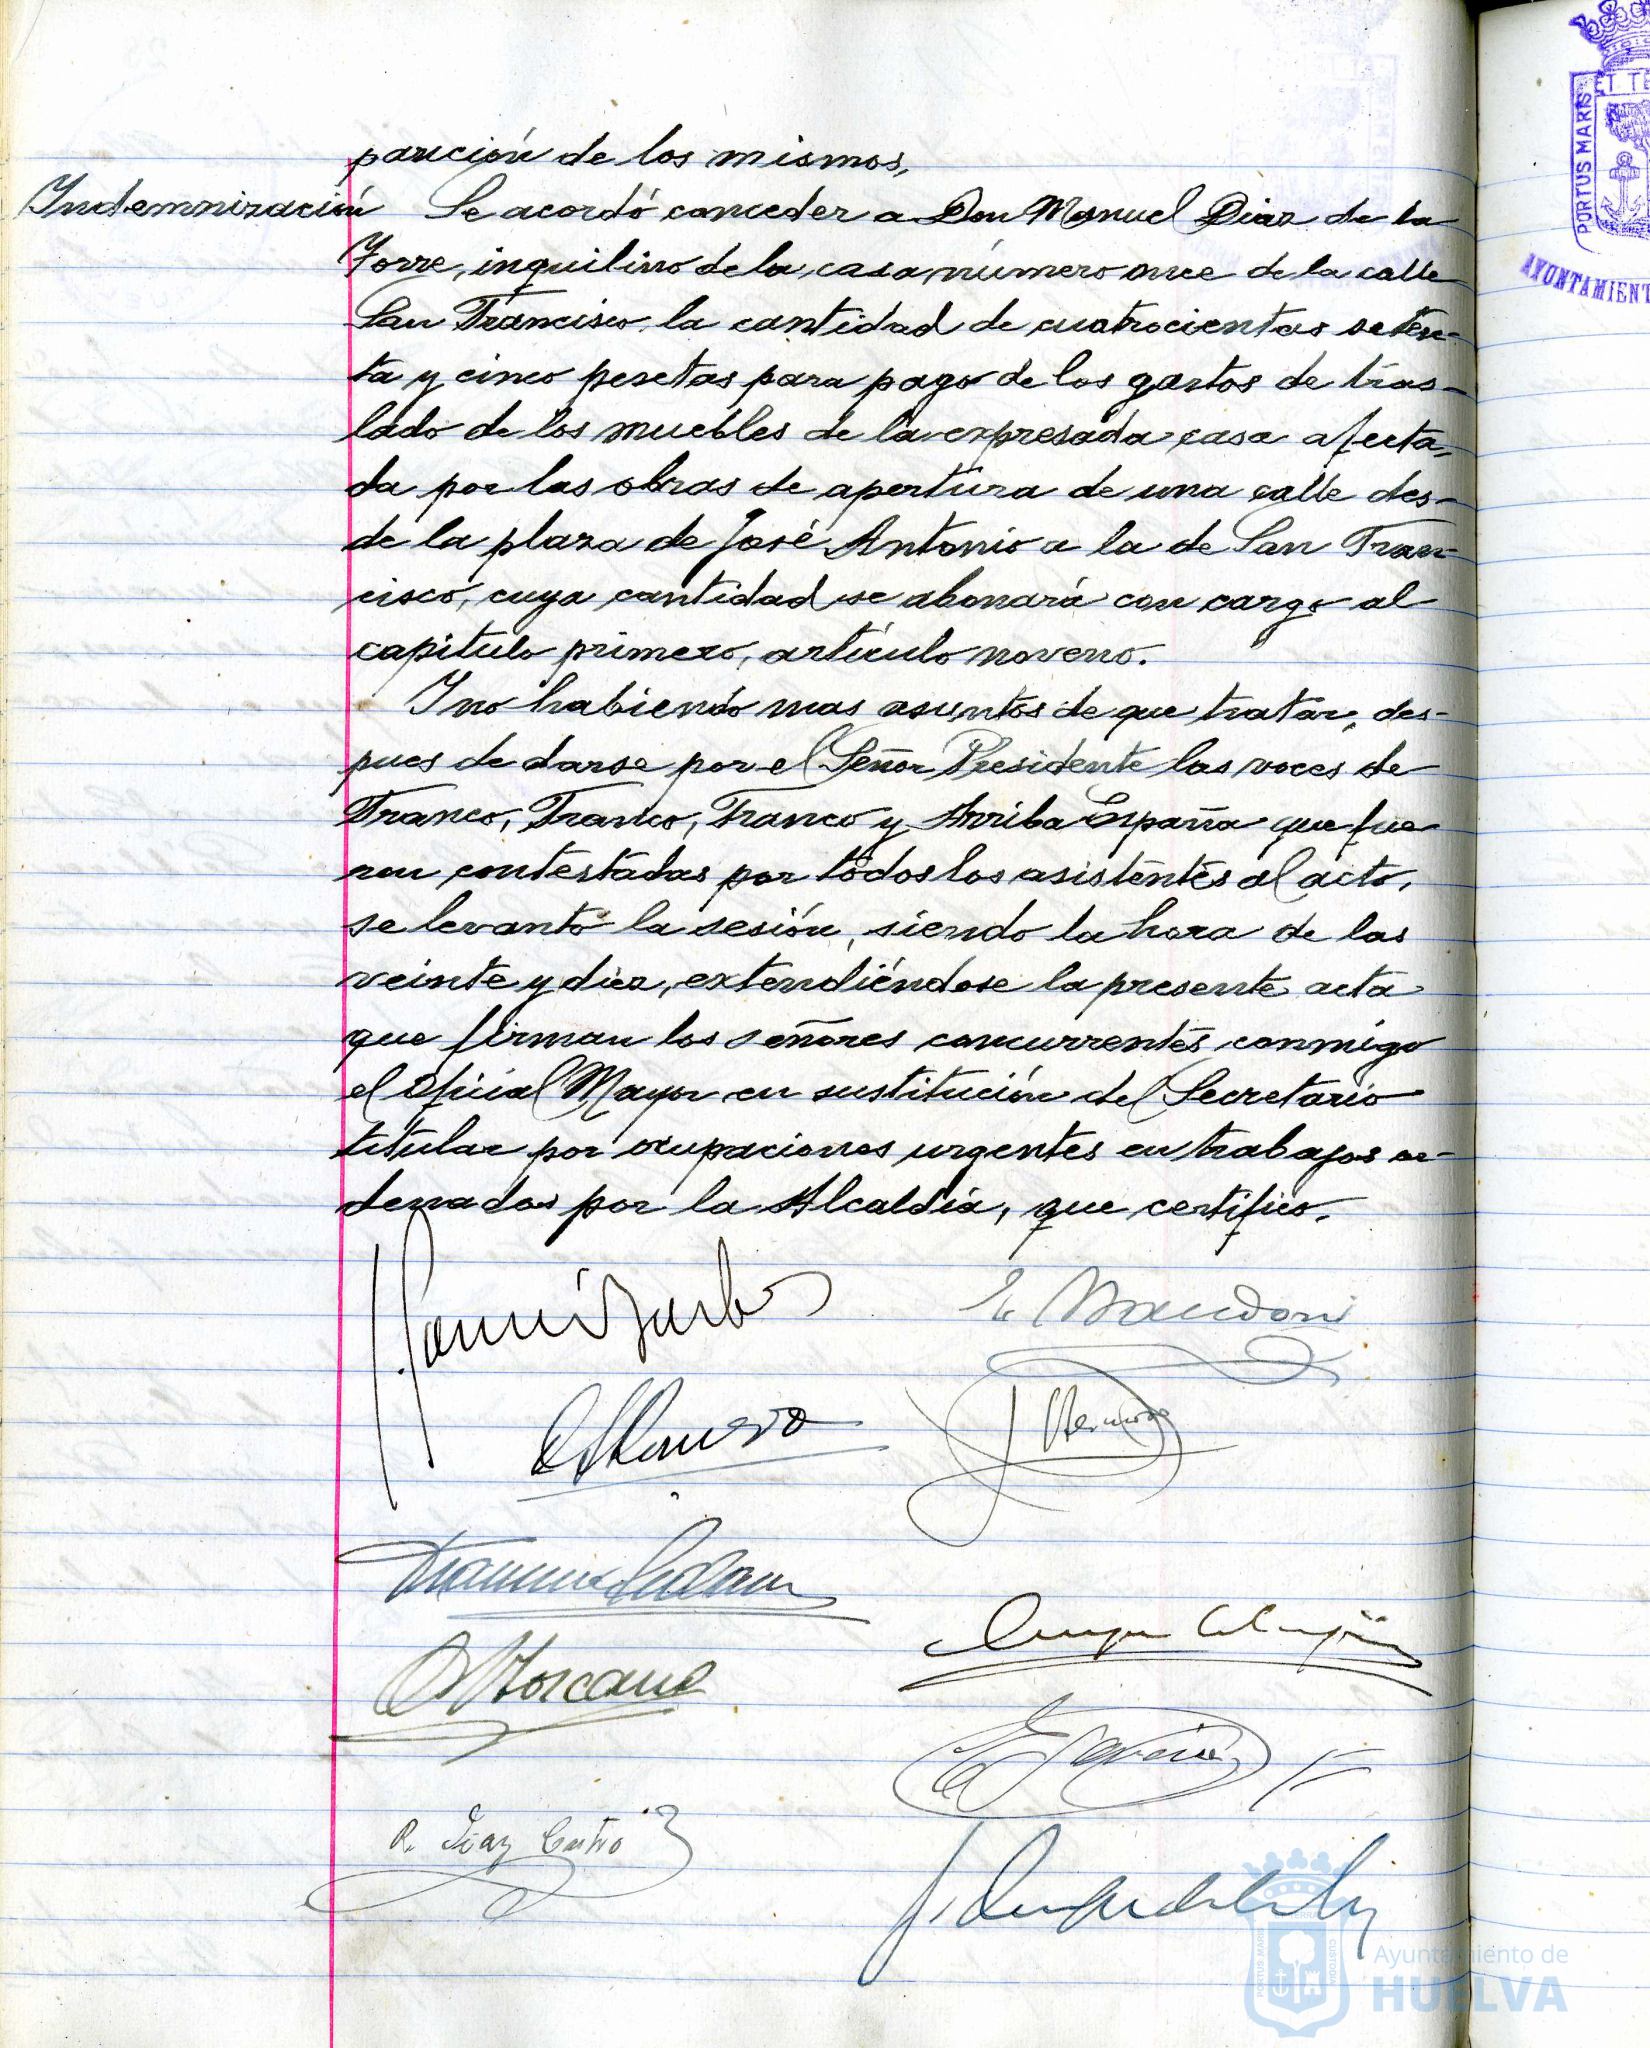 parición de los mismos.
Indemnización Se acordó conceder a Don Manuel Diaz de la
Torre, inquilino de la casa número once de la calle
San Francisco, la cantidad de cuatrocientas seten-
ta y cinco pesetas para pago de los gastos de tras-
lado de los muebles de la expresada casa afecta-
da por las obras de apertura de una calle des-
de la plaza de José Antonio a la de San Fran-
cisco, cuya cantidad se abonará con cargo al
capítulo primero, artículo noveno.
Y no habiendo mas asuntos de que tratar, des-
pues de darse por el Señor Presidente las voces de
Franco, Franco, Franco y Arriba España que fue-
ron contestadas por todos los asistentes al acto,
se levantó la sesión, siendo la hora de las
veinte y diez, extendiéndose la presente acta
que firman los señores concurrentes conmigo
el Oficial Mayor en sustitución del Secretario
titular por ocupaciones urgentes en trabajos or-
denados por la Alcaldía, que certifico.
R. Diaz Castro
PORTUS MARIS ET TE
AYUNTAMIENT
Ayuntamiento de
HUELVA